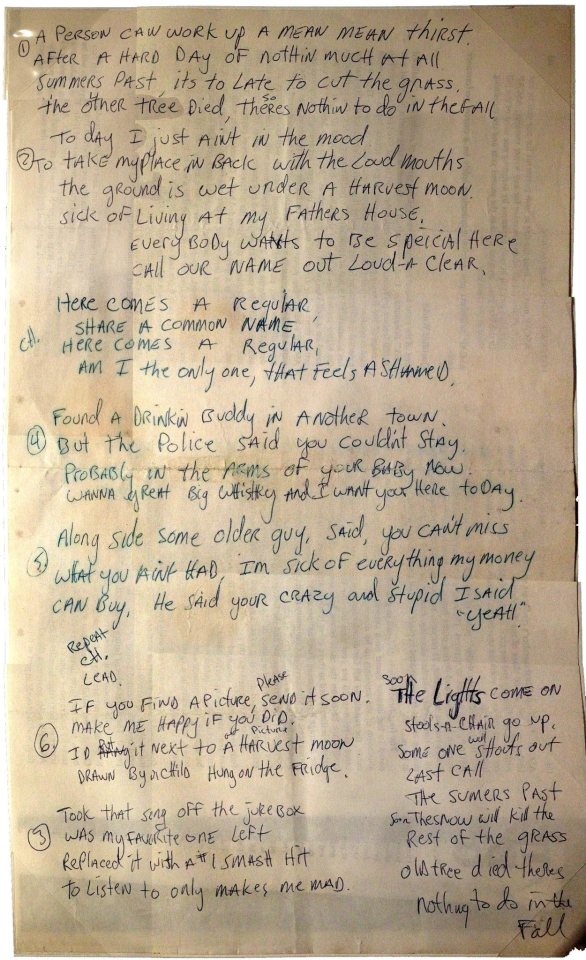 ① A PERSON CAN WORK UP A MEAN MEAN thirst.
AFter A HARD DAY OF NOTHIN MUCH At All
SUMMERS PAST, its to LATE to CUT the grASS.
the OTHER TREE DieD, so theres Nothin to do in the FAll
TO dAY I just Aint in the mood
② To TAKE my PLACE, in BACK with the LOUD mouths
the ground is WET UNDER A HARVEST MOON.
sick OF LiviNg At my FATHERS HOUSE.
EVERY BODY WANts to BE SPEICIAL HERE
CALL OUR NAME OUT LOUD-N CLEAR.
HERE COMES A REgulAR,
SHARE A COMMON NAME
CH. HERE COMES A REgulAR,
AM I the only one, tHAT FEEls ASHAMED.
FOUND A DRINKIN BUDDY iN ANOTHER TOWN.
④ But the POLICE SAID you COULDNT STAY.
PROBABLY iN the ARMS OF YOUR BABY NOW.
WANNA GREAT Big WHiskey AND I WANT your HERE to DAY.
Along Side Some older guy, SAiD, you CAN'T miss
⑤ WHAT YOU AiNt HAD, IM SiCK OF EVERYthing my money
CAN Buy. He SAiD your CRAZY and Stupid I SAiD
"YEAH".
REPEAT
CH.
LEAD.
IF you FiND A Picture, PLEASE SEND it SOON.
MAKE ME HAPPY IF YOU DiD.
⑥ ID Put it NEXT to A Picture HARVEST MOON
DRAWN By A CHilD HUNG ON the FRiDgE.
Took tHAT Song OFF the JUKEBOX
③ WAS my FAVORitE ONE LEFT
REPlACED it With A #1 SMASH Hit
to LiSTEN to only MAKES me MAD.
SOON THE LigHtS COME ON
Stools-N-CHAiR go up.
SOME ONE will SHouts out
LAST CALL
THE SUMERS PAST
Soon THE SNOW Will Kill the
REST OF the GRASS
OlD tREE died-theres
nothing to do in the
FAll